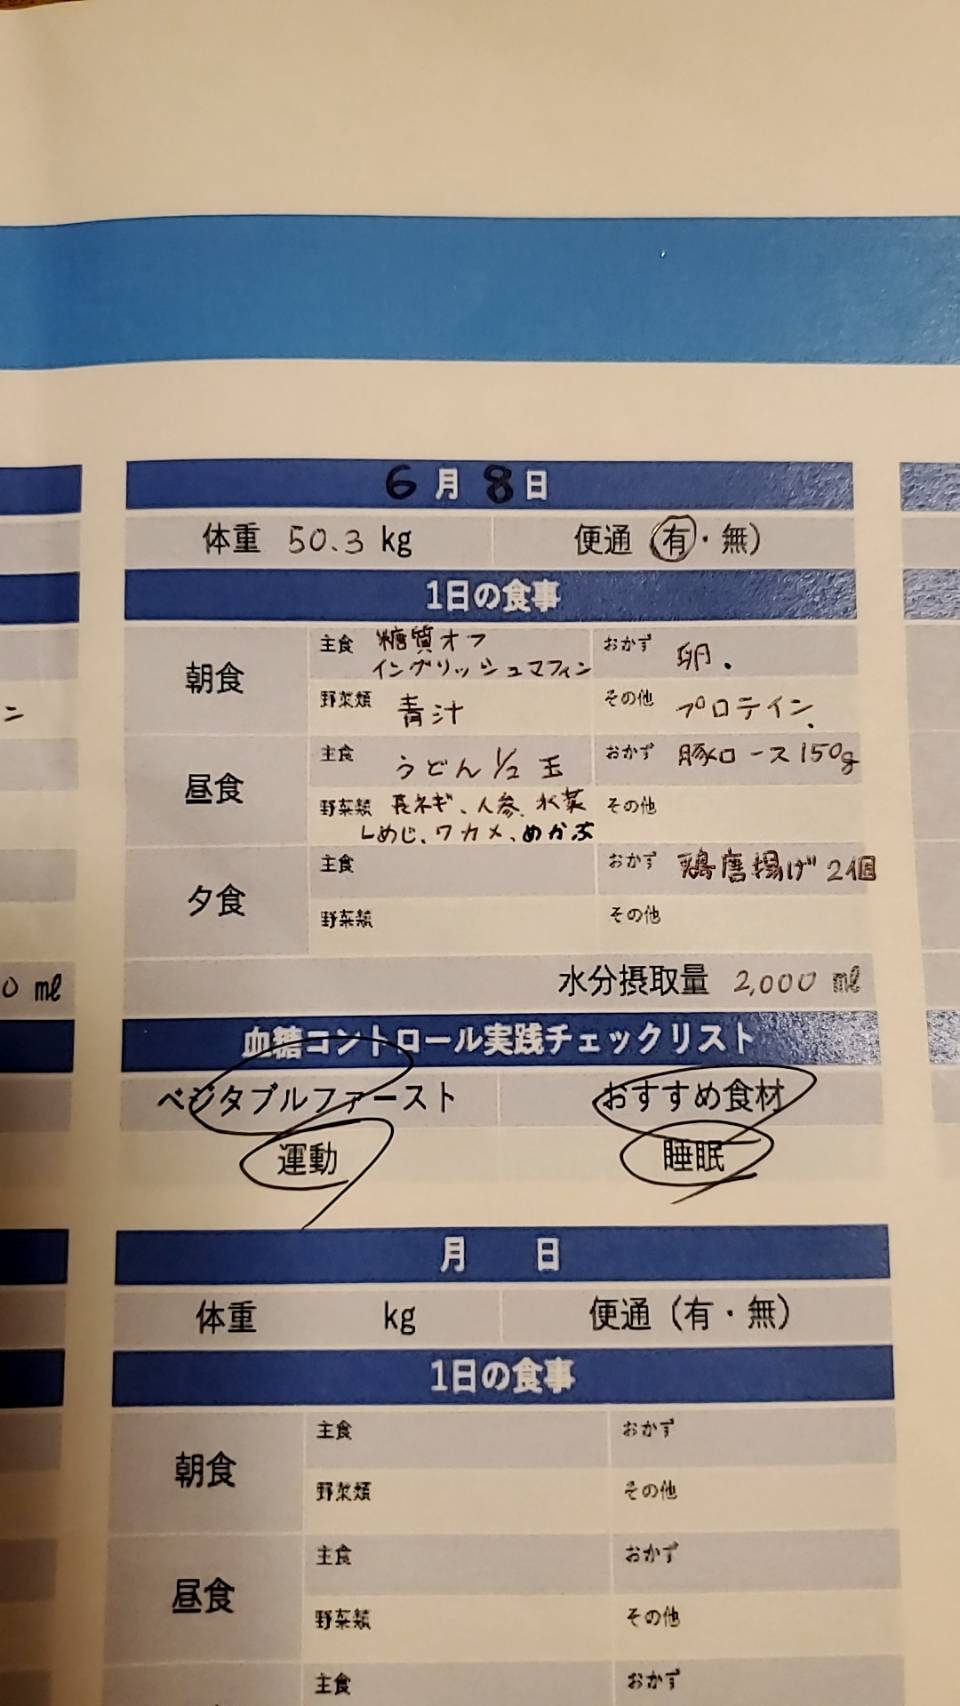 6月8日
体重 50.3 kg 便通(有・無)
1日の食事
朝食
主食 糖質オフ
イングリッシュマフィン
おかず 卵.
野菜類 青汁
その他 プロテイン.
昼食
主食 うどん 1/2 玉
おかず 豚ロース150g
野菜類 長ネギ、人参、水菜
しめじ、ワカメ、めかぶ
その他
夕食
主食
おかず 鶏唐揚げ 2個
野菜類
その他
水分摂取量 2,000 ㎖
血糖コントロール実践チェックリスト
ベジタブルファースト おすすめ食材
運動 睡眠
月 日
体重 kg 便通(有・無)
1日の食事
朝食
主食 おかず
野菜類 その他
昼食
主食 おかず
野菜類 その他
主食 おかず
ン
0 ㎖